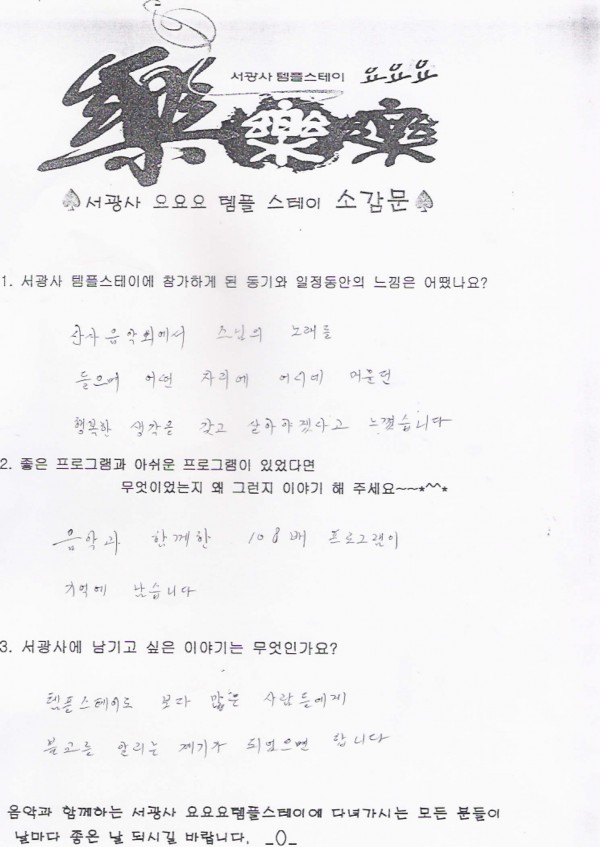 서광사 템플스테이 요요요
樂樂樂
♠서광사 요요요 템플 스테이 소감문♠
1. 서광사 템플스테이에 참가하게 된 동기와 일정동안의 느낌은 어땠나요?
산사음악회에서 스님의 노래를
들으며 어떤 자리에 어디에 머물던
행복한 생각을 갖고 살아야겠다고 느꼈습니다
2. 좋은 프로그램과 아쉬운 프로그램이 있었다면
무엇이었는지 왜 그런지 이야기 해 주세요~~*^^*
음악과 함께한 108배 프로그램이
기억에 남습니다
3. 서광사에 남기고 싶은 이야기는 무엇인가요?
템플스테이로 보다 많은 사람들에게
불교를 알리는 계기가 되었으면 합니다
음악과 함께하는 서광사 요요요템플스테이에 다녀가시는 모든 분들이
날마다 좋은 날 되시길 바랍니다. _()_